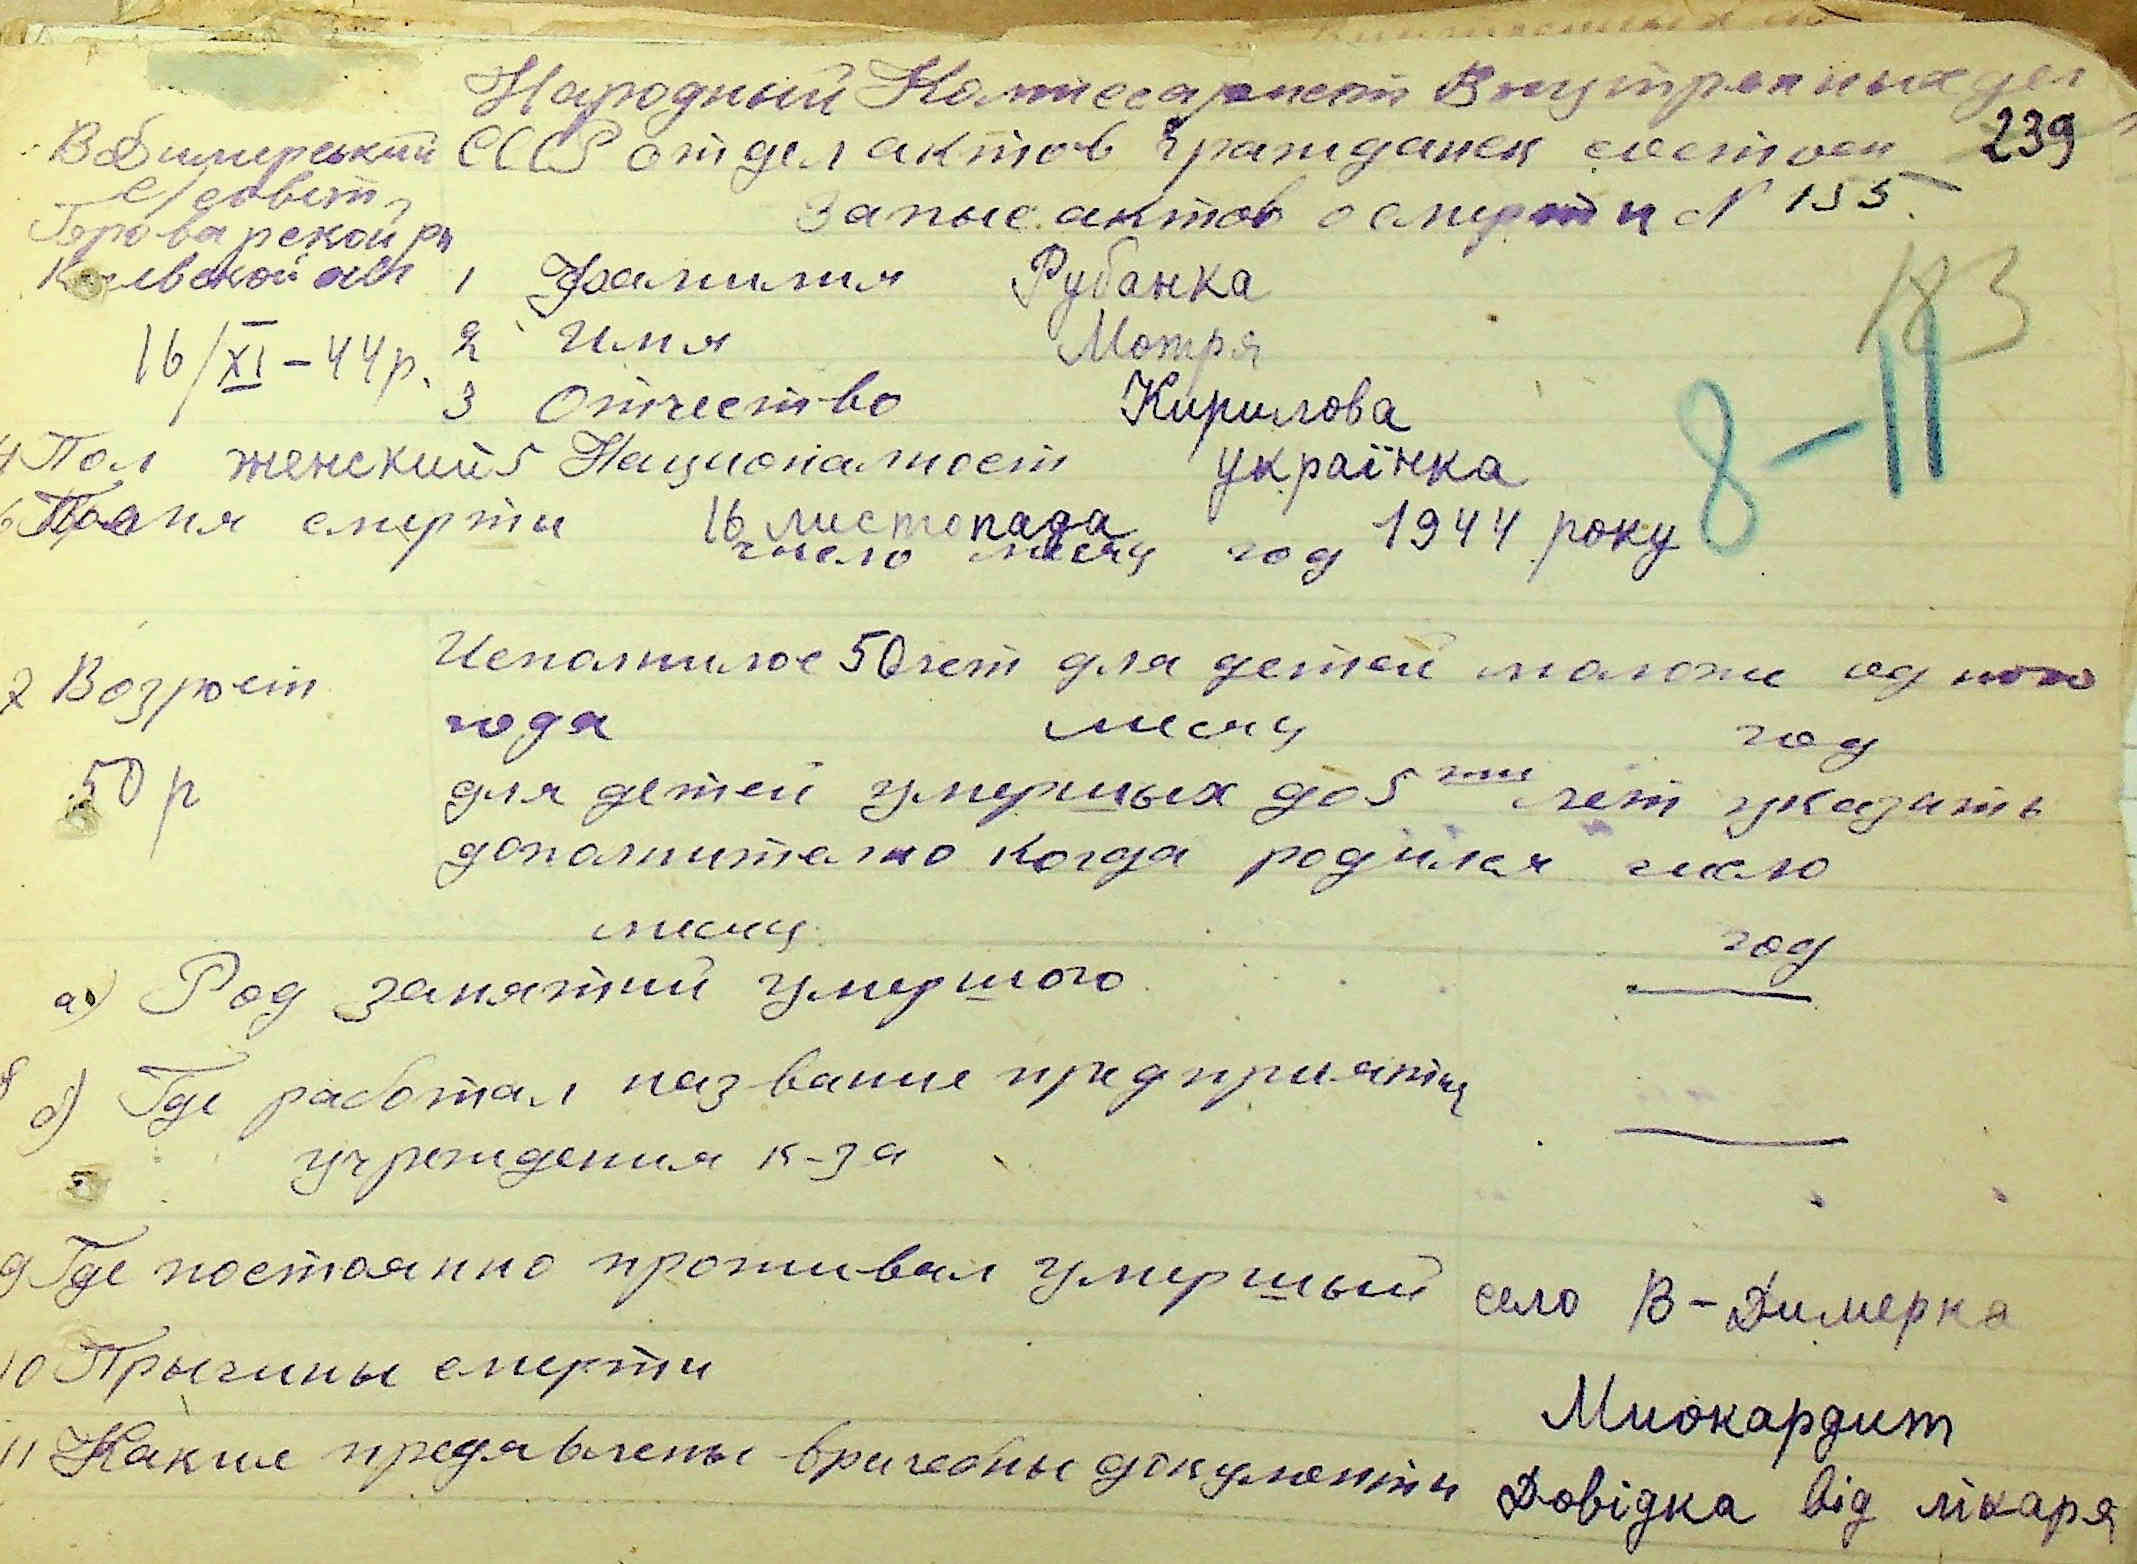 Народный Комиссариат Внутренных дел
239
В Димерський СССР отдел актов гражданск состоян
с/совет
Запис актов о смерти N 155.
Броварской рн
Киевской обл
183
1 Фамилия Рубанка
16/XI-44р. 2 Имя Мотря
3 Отчество Кирилова
8-11
4 Пол женский 5 Националност українка
6 Время смерти 16 листопада 1944 року
число месяц год
7 Возраст Исполнилое 50 лет для детей моложе одного
года месяц год
50 р для детей умерших до 5 ти лет указать
дополнително когда родился число
месяц год
а) Род занятий умершого —
8
б) Где работал название предприятия
учреждения к-за —
9 Где постоянно проживал умерший село В-Димерка
10 Причины смерти Миокардит
11 Какие предявлены врачебны документи Довідка від лікаря